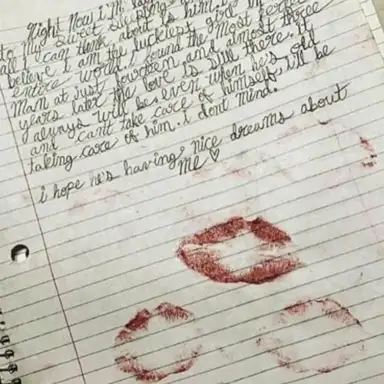 Right now I'm
to my sweet sleeping
all I can think about is him. I
believe I am the luckiest girl in
entire world, I found the most perfect
man at just fourteen and almost three
years later the love is still there. It
always will be, even when he's old
and can't take care of himself, I'll be
taking care of him. i dont mind.
i hope he's having nice dreams about
me ♡